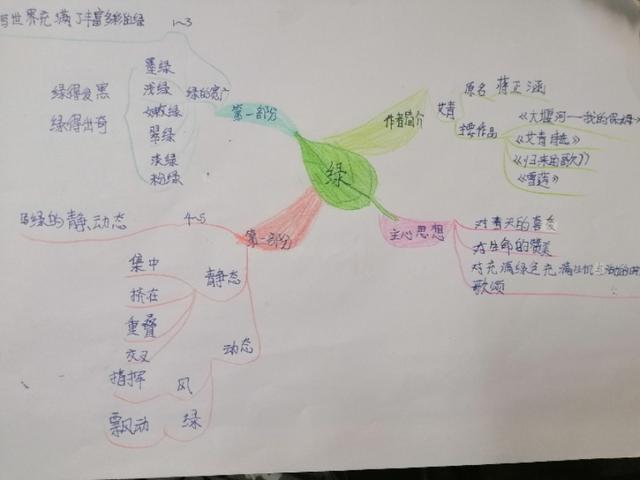 写世界充满了丰富多彩的绿 1~3
绿得发黑
绿得出奇
墨绿
浅绿
嫩绿
翠绿
淡绿
粉绿
绿的宽广
第一部分
绿
作者简介
艾青
原名 蒋正涵
主要作品
《大堰河一我的保姆》
《艾青诗选》
《归来的歌》
《雪莲》
主心思想
对春天的喜爱
对生命的赞美
对充满绿色充满生机
歌颂
写绿的静、动态 4~5
第二部分
静态
集中
挤在
重叠
交叉
动态
风
指挥
绿
飘风动